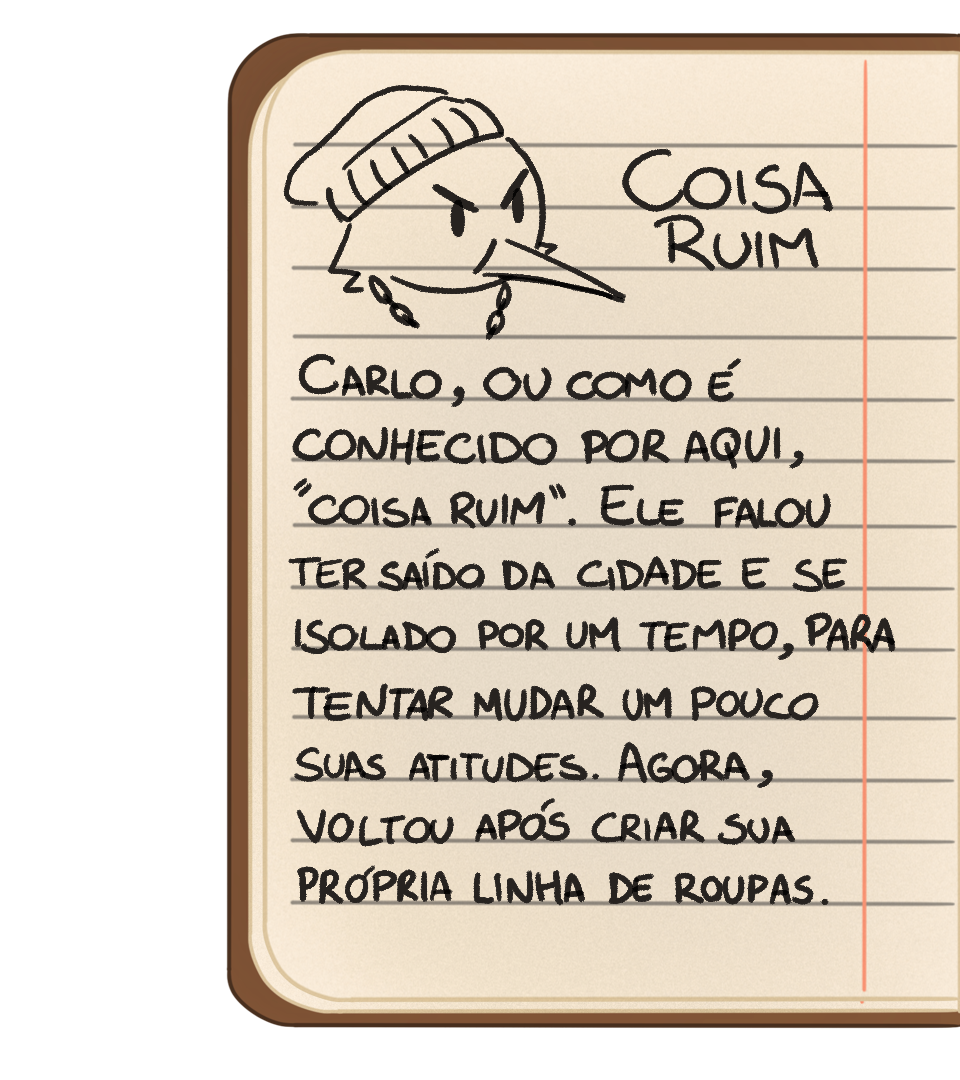 COISA
RUIM
CARLO, OU COMO É
CONHECIDO POR AQUI,
"COISA RUIM". ELE FALOU
TER SAÍDO DA CIDADE E SE
ISOLADO POR UM TEMPO, PARA
TENTAR MUDAR UM POUCO
SUAS ATITUDES. AGORA,
VOLTOU APÓS CRIAR SUA
PRÓPRIA LINHA DE ROUPAS.